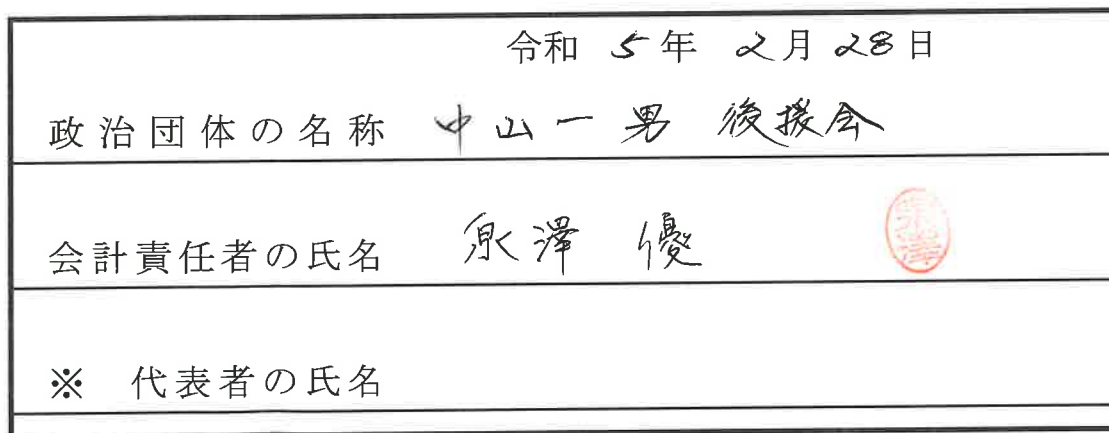 令和 5年 2月 28日
政治団体の名称 中山一男 後援会
会計責任者の氏名 泉澤 優
※ 代表者の氏名